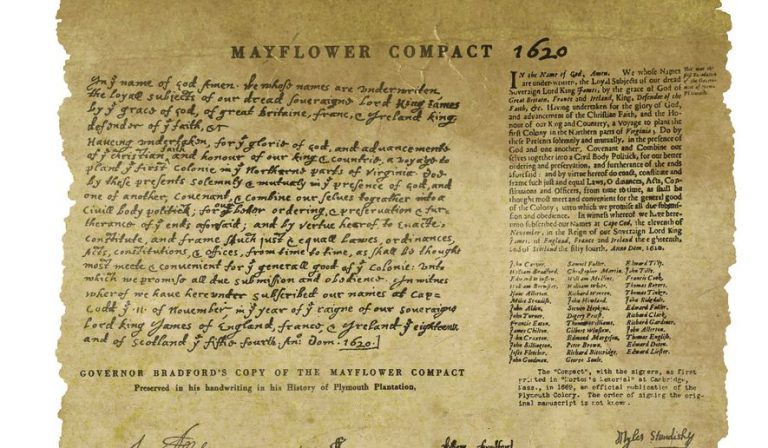 MAYFLOWER COMPACT 1620
In yͤ name of God Amen. We whose names are underwriten,
the loyall subjects of our dread soveraigne Lord King James
by yͤ grace of God, of great Britaine, franc, & Ireland king,
defender of yͤ faith, &c
Haveing undertaken, for yͤ glorie of God, and advancemente
of yͤ christian faith and honour of our king & countrie, a voyage to
plant yͤ first colonie in yͤ Northerne parts of Virginia. Doe
by these presents solemnly & mutualy in yͤ presence of God, and
one of another, covenant, & combine our selves togeather into a
Civill body politick; for our better ordering, & preservation & fur-
therance of yͤ ends aforesaid; and by vertue hearof to enacte,
constitute, and frame such just & equall lawes, ordinances,
Acts, constitutions, & offices, from time to time, as shall be thought
most meete & convenient for yͤ generall good of yͤ Colonie: unto
which we promise all due submission and obedience. In witnes
wherof we have hereunder subscribed our names at Cap-
Codd yͤ .11. of November, in yͤ year of yͤ raigne of our soveraigne
Lord king James of England, franc, & Ireland yͤ eighteenth
and of Scotland yͤ fiftie fourth. An: Dom. 1620.
GOVERNOR BRADFORD'S COPY OF THE MAYFLOWER COMPACT
Preserved in his handwriting in his History of Plymouth Plantation.
IN the Name of God, Amen. We whose Names
are under-written, the Loyal Subjects of our dread
Soveraign Lord King James, by the grace of God of
Great Britain, France and Ireland, King, Defender of the
Faith, &c. Having undertaken for the glory of God,
and advancement of the Christian Faith, and the Ho-
nour of our King and Countrey, a Voyage to plant the
first Colony in the Northern parts of Virginia; Do by
these Presents solemnly and mutually, in the presence of
God and one another, Covenant and Combine our
selves together into a Civil Body Politick, for our better
ordering and preservation, and furtherance of the ends
aforesaid: and by virtue hereof do enact, constitute and
frame such just and equal Laws, Ordinances, Acts, Con-
stitutions and Officers, from time to time, as shall be
thought most meet and convenient for the general good
of the Colony; unto which we promise all due submis-
sion and obedience. In witness whereof we have here-
unto subscribed our Names at Cape Cod, the eleventh of
November, in the Reign of our Soveraign Lord King
James, of England, France and Ireland the eighteenth,
and of Scotland the fifty fourth, Anno Dom. 1620.
John Carver, Samuel Fuller, Edward Tilly,
William Bradford, Christopher Martin, John Tilly,
Edward Winslow, William Mullins, Francis Cook,
William Brewster, William White, Thomas Rogers,
Isaac Allerton, Richard Warren, Thomas Tinker,
Miles Standish, John Howland, John Ridgdale,
John Alden, Steven Hopkins, Edward Fuller,
John Turner, Digery Priest, Richard Clark,
Francis Eaton, Thomas Williams, Richard Gardiner,
James Chilton, Gilbert Winslow, John Allerton,
John Craxton, Edmund Margeson, Thomas English,
John Billington, Peter Brown, Edward Doten,
Joses Fletcher, Richard Bitteridge, Edward Liester.
John Goodman, George Soule,
The "Compact", with the signers, as first
printed in "Morton's Memorial" at Cambridge,
Mass., in 1669, an official publication of the
Plymouth Colony. The order of signing the orig-
inal manuscript is not known.
Myles Standish